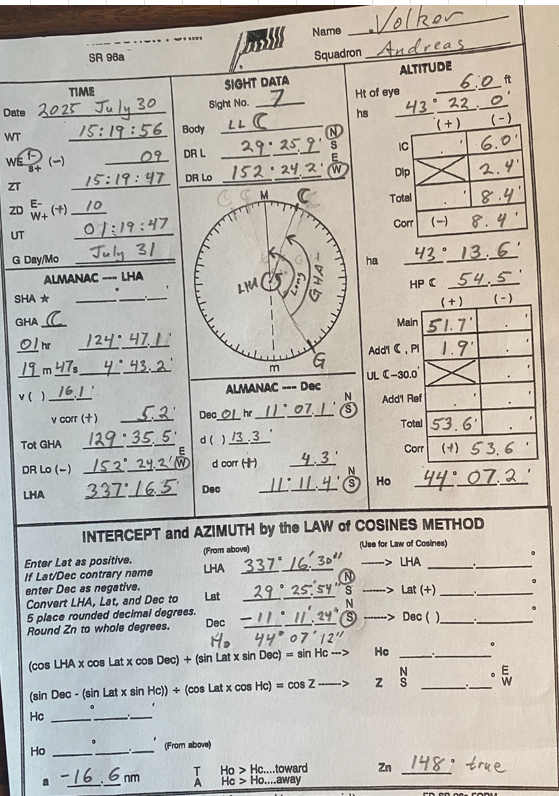 Name Volker
SR 96a
Squadron Andreas
TIME
Date 2025 July 30
WT 15:19:56
WE f- s+ (-) 09
ZT 15:19:47
ZD E- W+ (+) 10
UT 01:19:47
G Day/Mo July 31
ALMANAC ---- LHA
SHA ★ ° . '
GHA ☾
01 hr 124° 47.1'
19 m 47 s 4° 43.2'
v ( ) 16.1'
v corr (+) 5.2'
Tot GHA 129° 35.5'
DR Lo (-) 152° 24.2' E W
LHA 337° 16.5'
SIGHT DATA
Sight No. 7
Body LL ☾
DR L 29° 25.9' N S
DR Lo 152° 24.2' E W
☾ ☾ M ☾
LHA Long GHA
m G
ALMANAC ---- Dec
Dec 01 hr 11° 07.1' N S
d ( ) 13.3'
d corr (+) 4.3'
Dec 11° 11.4' N S
ALTITUDE
Ht of eye 6.0 ft
hs 43° 22.0'
(+) (-)
IC . ' 6.0'
Dip 2.4'
Total . ' 8.4'
Corr (-) 8.4'
ha 43° 13.6'
HP ☾ 54.5'
(+) (-)
Main 51.7' . '
Add'l ☾, Pl 1.9' . '
UL ☾-30.0' . '
Add'l Ref . '
Total 53.6' . '
Corr (+) 53.6'
Ho 44° 07.2'
INTERCEPT and AZIMUTH by the LAW OF COSINES METHOD
(From above) (Use for Law of Cosines)
Enter Lat as positive.
If Lat/Dec contrary name
enter Dec as negative.
Convert LHA, Lat, and Dec to
5 place rounded decimal degrees.
Round Zn to whole degrees.
LHA 337° 16' 30" -----> LHA . °
Lat 29° 25' 54" N S -----> Lat (+) . °
Dec -11° 11' 24" N S -----> Dec ( ) . °
Ho 44° 07' 12"
(cos LHA x cos Lat x cos Dec) + (sin Lat x sin Dec) = sin Hc ---> Hc . °
(sin Dec - (sin Lat x sin Hc)) ÷ (cos Lat x cos Hc) = cos Z -----> Z N S . ° E W
Hc ° . '
Ho ° . ' (From above)
a -16.6 nm
T Ho > Hc....toward
A Hc > Ho....away
Zn 148° true